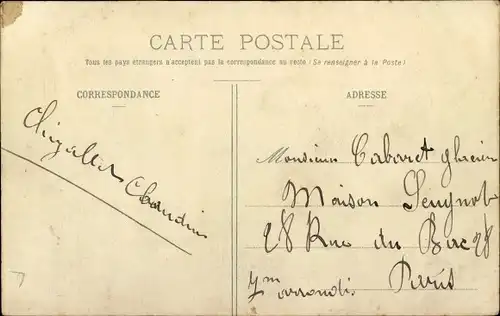 CARTE POSTALE
Tous les pays étrangers n'acceptent pas la correspondance au recto (Se renseigner à la Poste)
CORRESPONDANCE
ADRESSE
Monsieur Cabaret glacier
Maison Seugnot
28 Rue du Bac 28
arrondis Paris